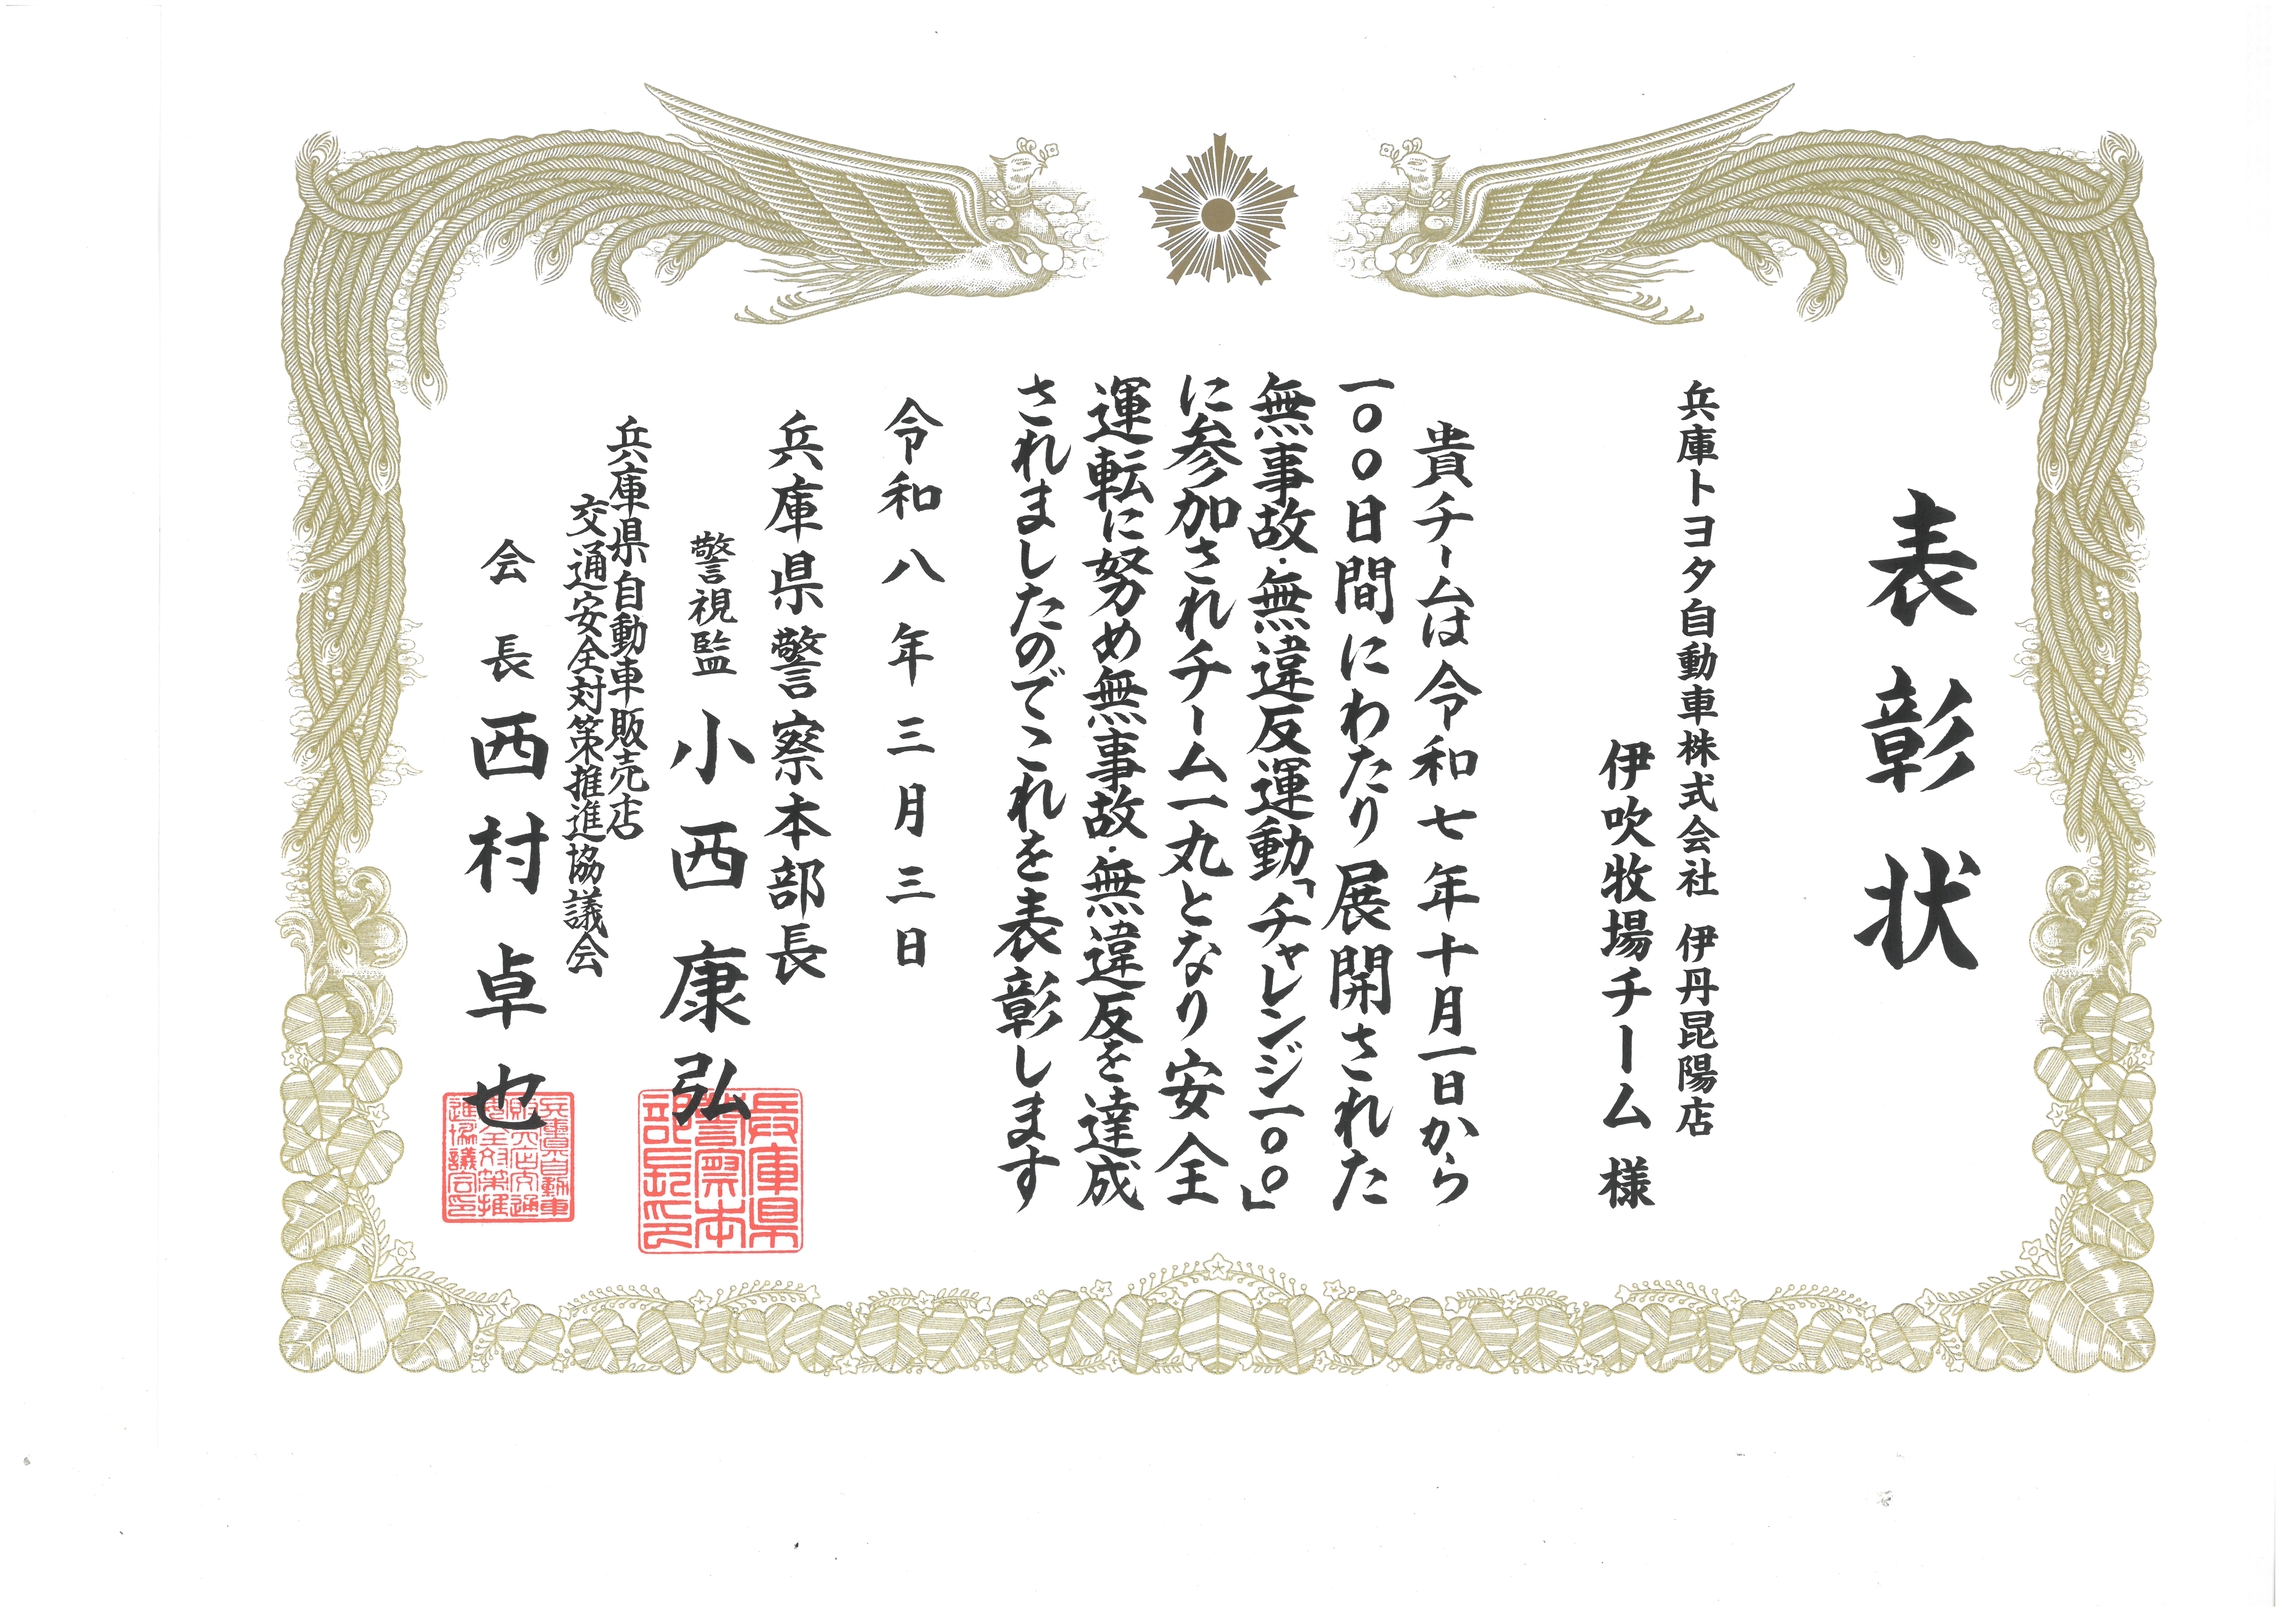 表彰状
兵庫トヨタ自動車株式会社 伊丹昆陽店
伊吹牧場チーム 様
貴チームは令和七年十月一日から
一〇〇日間にわたり展開された
無事故・無違反運動「チャレンジ一〇〇」
に参加されチーム一丸となり安全
運転に努め無事故・無違反を達成
されましたのでこれを表彰します
令和八年三月三日
兵庫県警察本部長
警視監 小西康弘
兵庫県自動車販売店
交通安全対策推進協議会
会長 西村卓也
兵庫県
警察本
部長印
兵庫県自動車
販売店交通
安全対策推
進協議会印